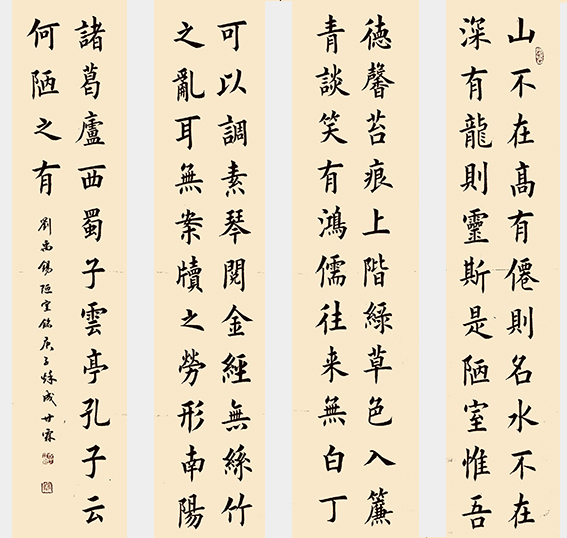 山不在髙有僊則名水不在
深有龍則靈斯是陋室惟吾
德馨苔痕上階綠草色入簾
青談笑有鴻儒往来無白丁
可以調素琴閱金經無絲竹
之亂耳無案牘之勞形南陽
諸葛廬西蜀子雲亭孔子云
何陋之有
劉禹錫陋室銘庚子秋成甘霖